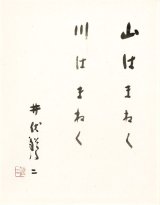 山はまねく
川はまねく
井伏鱒二